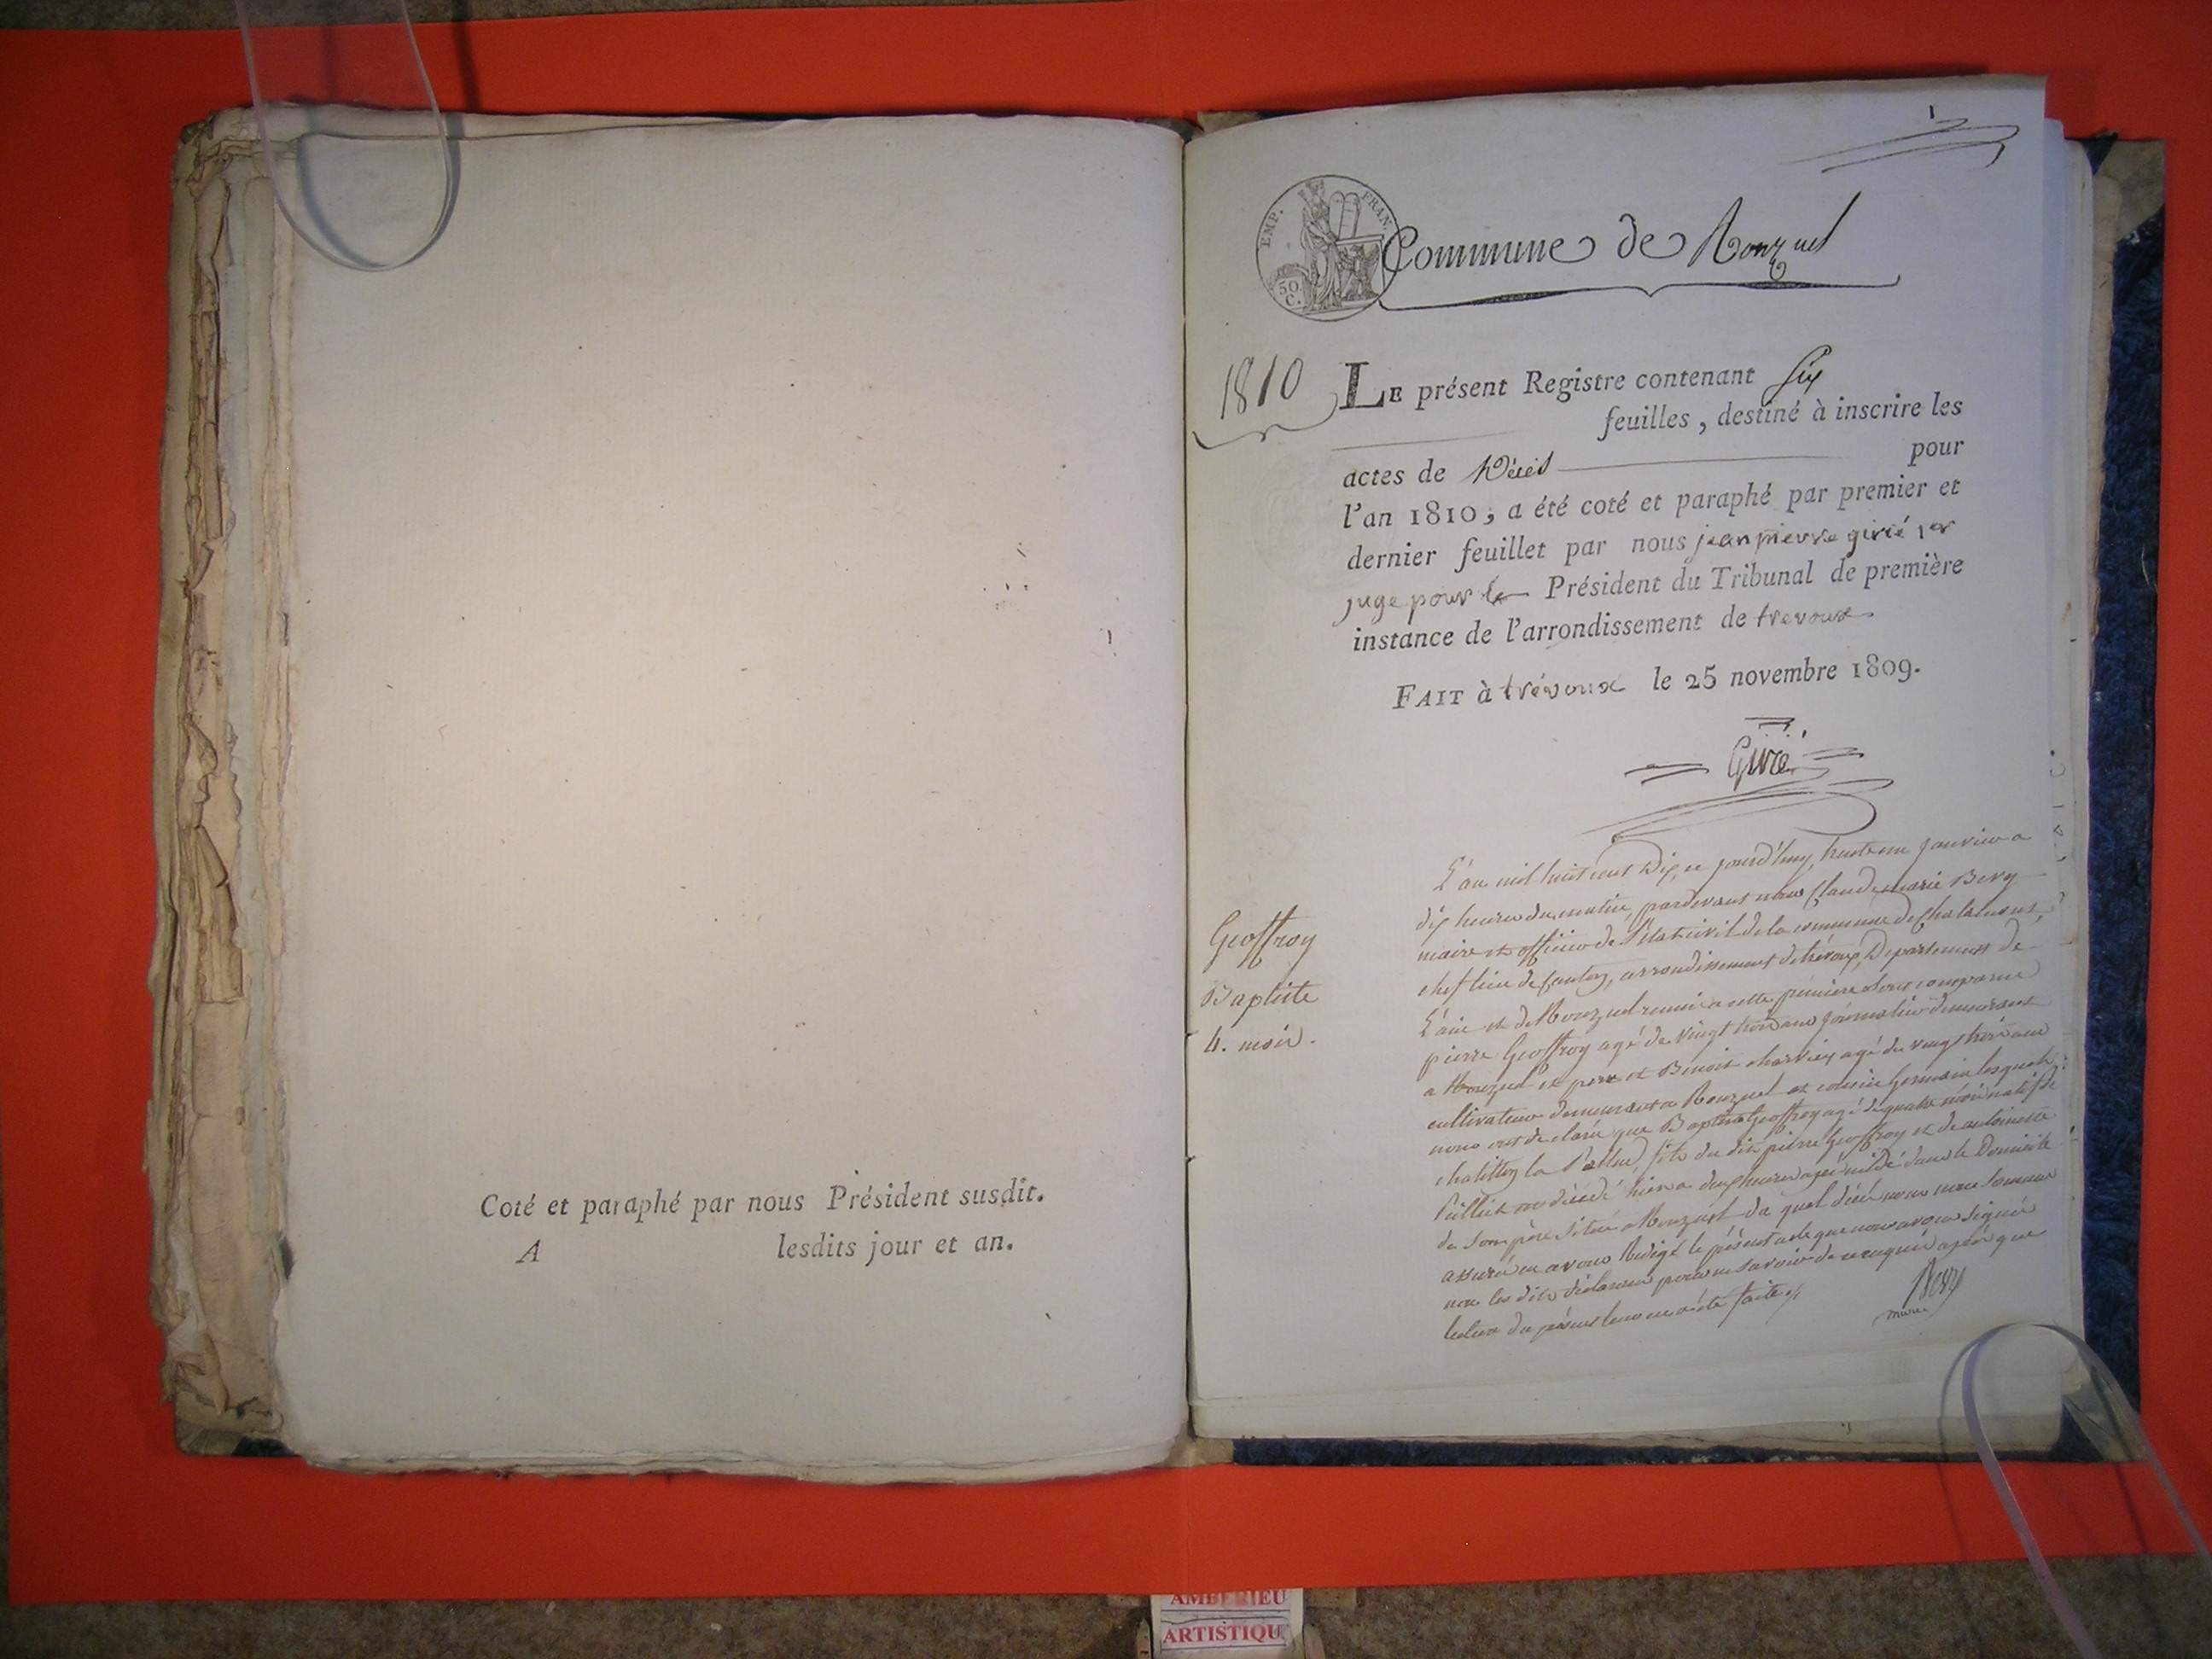 Coté et paraphé par nous Président susdit.
A lesdits jour et an.
1
EMP. FRAN.
50 C.
Commune de Ronzuel
1810
LE présent Registre contenant Six
feuilles, destiné à inscrire les
actes de Décès pour
l'an 1810, a été coté et paraphé par premier et
dernier feuillet par nous jean pierre givré 1er
juge pour le Président du Tribunal de première
instance de l'arrondissement de trevoux
FAIT à trévoux le 25 novembre 1809.
Givré
Geoffroy
Baptiste
4. mois.
L'an mil huit cent Dix, ce jourd'huy trente un Janvier a
dix heures du matin, pardevant nous Claude marie Bery
maire et officier de l'Etat civil de la commune de Chalamont,
chef lieu de Canton, arrondissement de trévoux, Departement de
L'ain et de Ronzuel reunie a cette premiere sont comparus
pierre Geoffroy agé de vingt trois ans journalier demeurant
a Ronzuel et pere et Benoit agé de vingt trois ans
cultivateur demeurant a Ronzuel et cousin Germain lesquels
nous ont declaré que Baptiste Geoffroy agé de quatre mois natif de
chatillon la Pallud, fils du dit pierre Geoffroy et de antoinette
est décédé hier a deux heures après midi dans le Domicile
de son père situé a Ronzuel du quel décès nous nous sommes
assuré en avons Redigé le présent acte que nous avons signé
non les dits déclarans pour ne savoir de ce requis après que
lecture du présent leur en a été faite
Bery
maire
AMBERIEU
ARTISTIQU